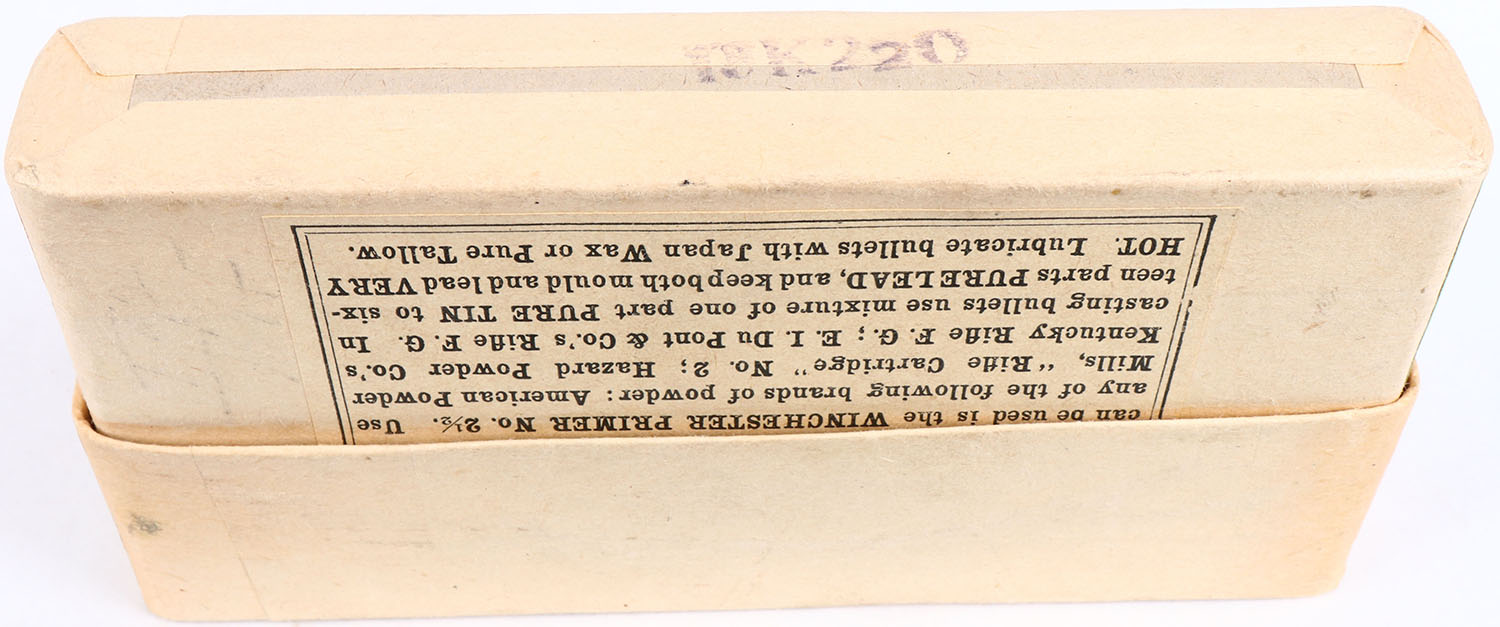 can be used is the WINCHESTER PRIMER No. 2½. Use
any of the following brands of powder: American Powder
Mills, "Rifle Cartridge" No. 2; Hazard Powder Co.'s
Kentucky Rifle F. G.; E. I. Du Pont & Co.'s Rifle F. G. In
casting bullets use mixture of one part PURE TIN to six-
teen parts PURE LEAD, and keep both mould and lead VERY
HOT. Lubricate bullets with Japan Wax or Pure Tallow.